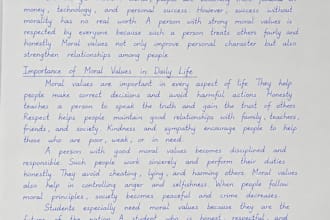 money, technology, and personal success. However, success without
morality has no real worth. A person with strong moral values is
respected by everyone because such a person treats others fairly and
honestly. Moral values not only improve personal character but also
strengthen relationships among people.
Importance of Moral Values in Daily Life
Moral values are important in every aspect of life. They help
people make correct decisions and avoid harmful actions. Honesty
teaches a person to speak the truth and gain the trust of others.
Respect helps people maintain good relationships with family, teachers,
friends, and society. Kindness and sympathy encourage people to help
those who are poor, weak, or in need.
A person with good moral values becomes disciplined and
responsible. Such people work sincerely and perform their duties
honestly. They avoid cheating, lying, and harming others. Moral values
also help in controlling anger and selfishness. When people follow
moral principles, society becomes peaceful and crime decreases.
Students especially need moral values because they are the
future of the nation. A student who is honest, respectful, and